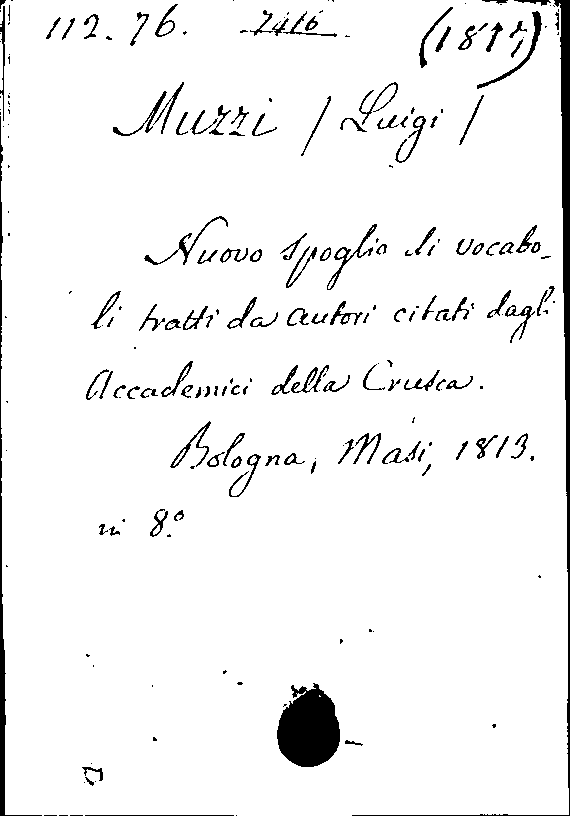 112.76. 7416
Muzzi / Luigi /
Nuovo spoglio di vocabo-
li tratti da autori citati dagli
Accademici della Crusca.
Bologna, Masi, 1813.
in 8.º